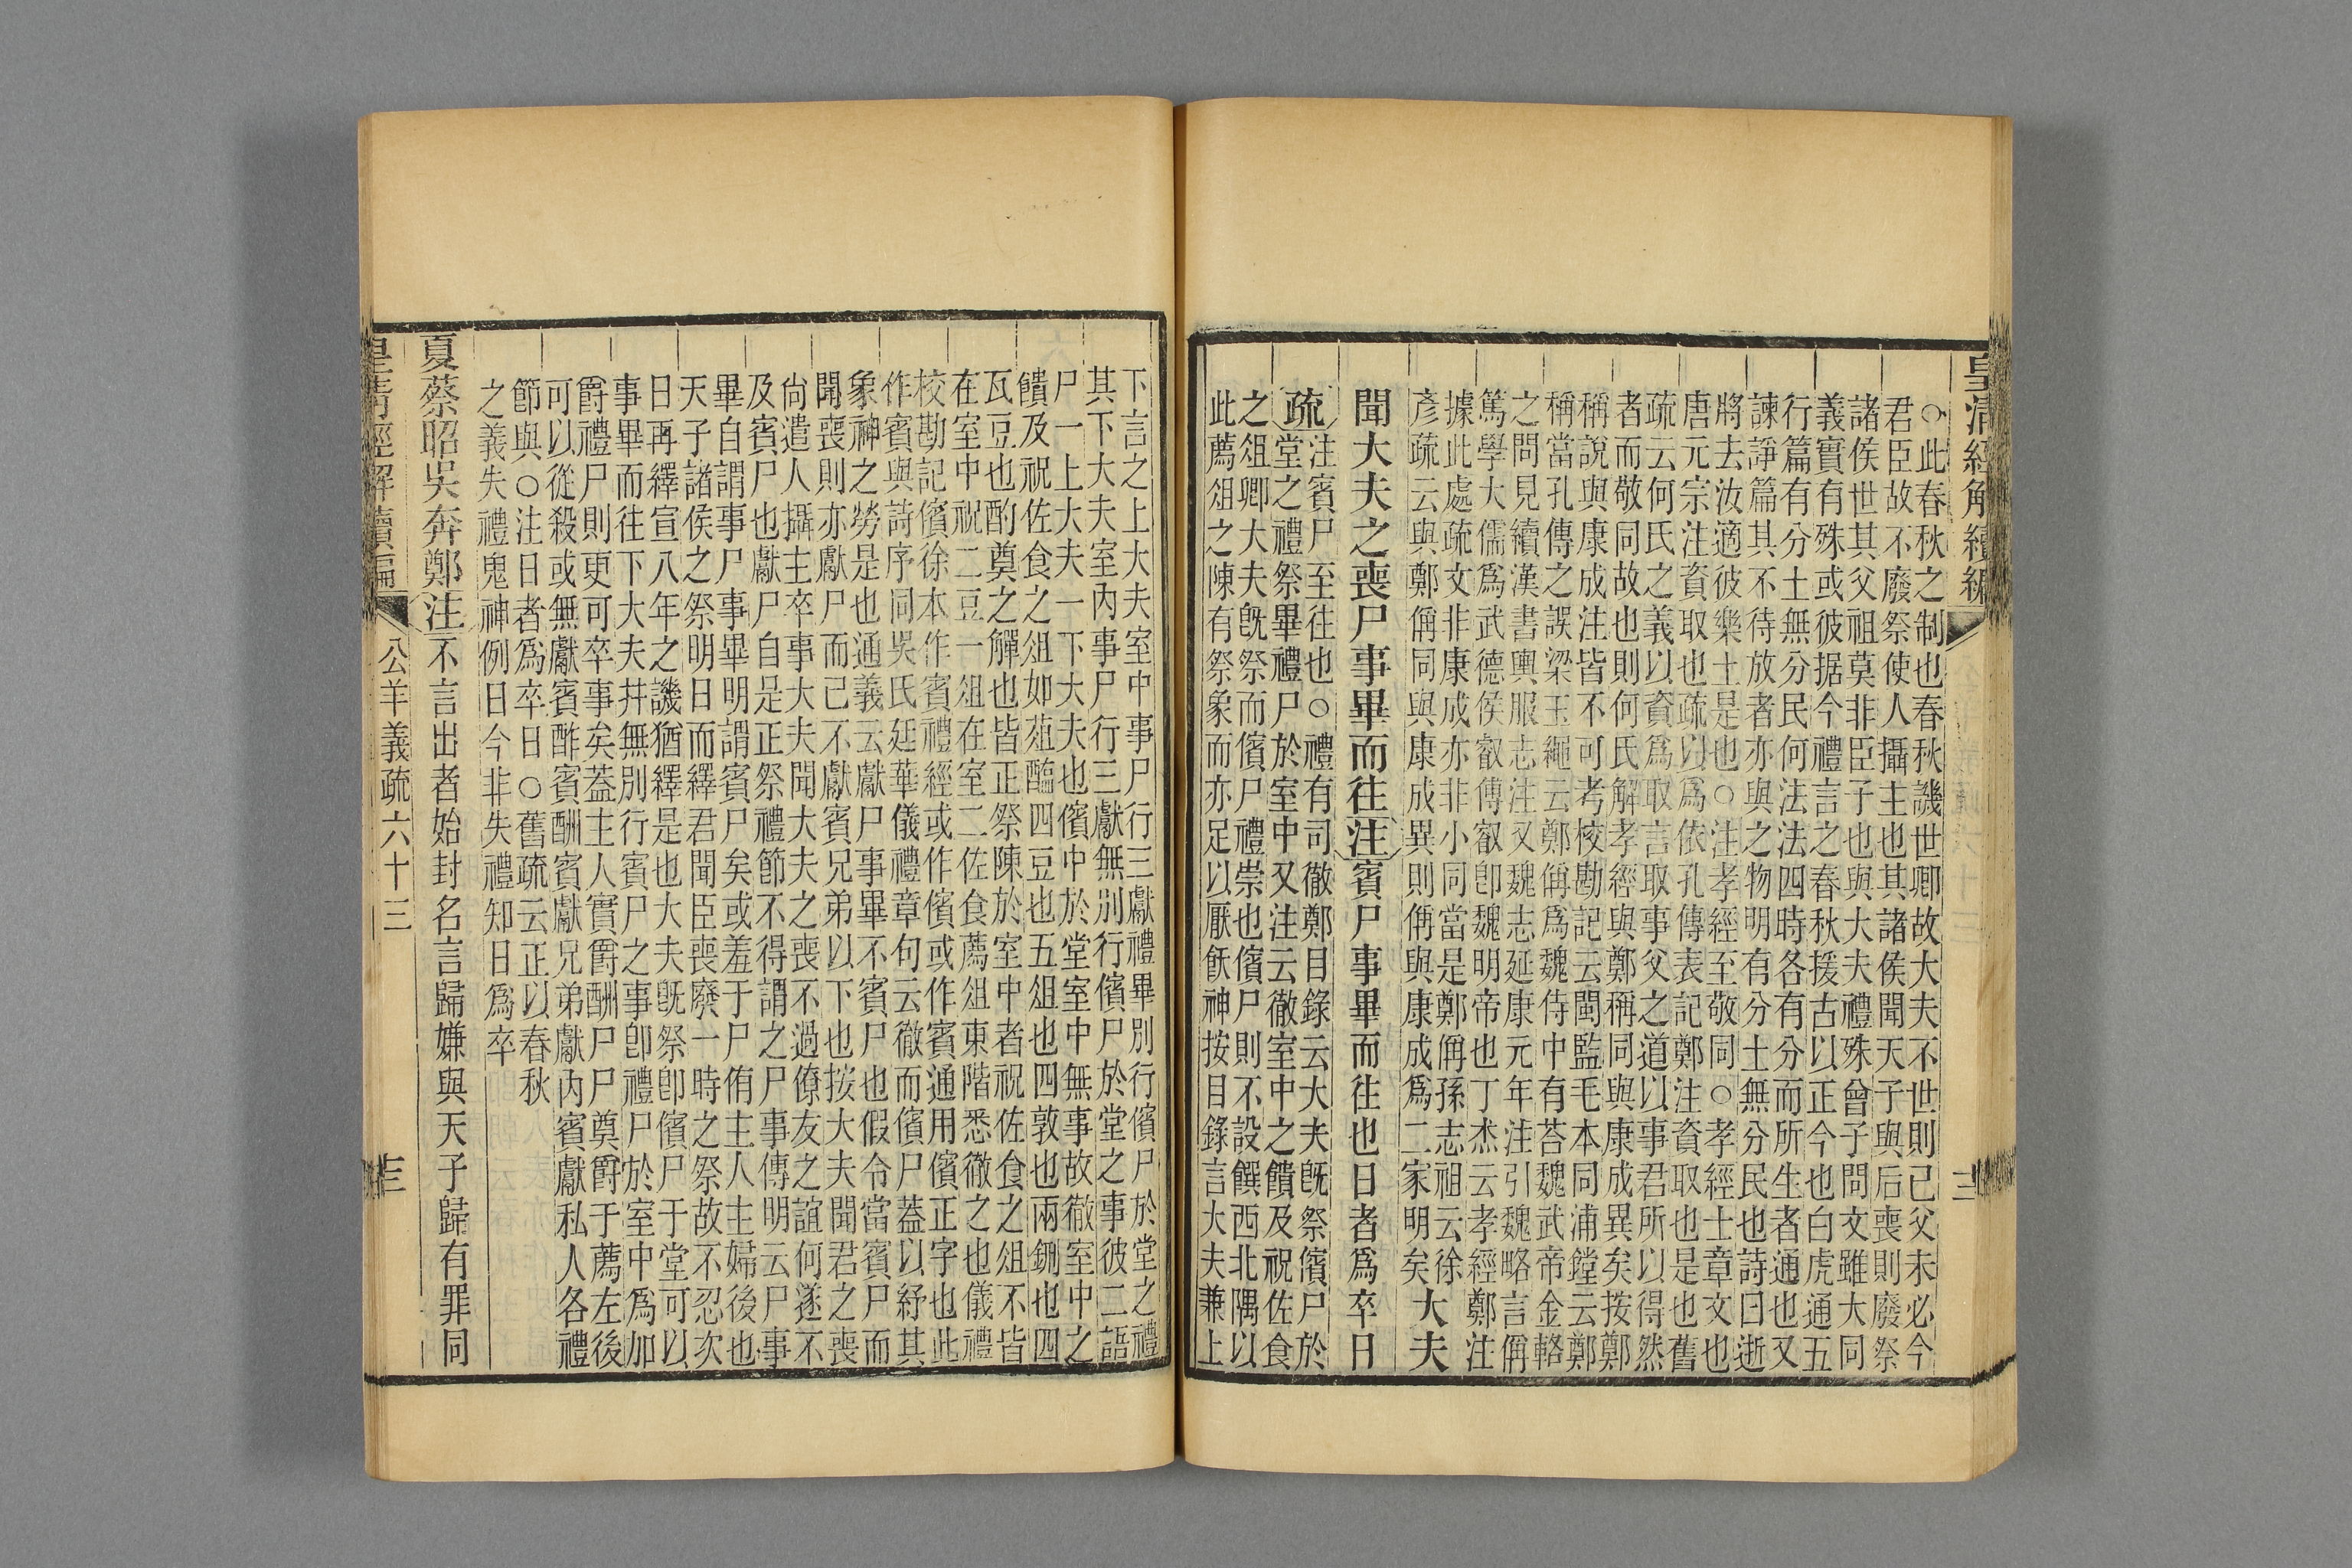 皇清經解續編
三
○此春秋之制也春秋譏世卿故大夫不世則己父未必今
君臣故不廢祭使人攝主也其諸侯聞天子與后喪則廢祭
諸侯世其父祖莫非臣子也與大夫禮殊曾子問文雖大同
義實有殊或彼据今禮言之春秋援古以正今也白虎通五
行篇有分土無分民何法法四時各有分而所生者通也又
諫諍篇其不待放者亦與之物明有分土無分民也詩曰逝
將去汝適彼樂土是也○注孝經至敬同○孝經士章文也
唐元宗注資取也疏以爲依孔傳表記鄭注資取也是也舊
疏云何氏之義以資爲取言取事父之道以事君所以得然
者而敬同故也則何氏解孝經與鄭稱同與康成異矣按鄭
稱說與康成注皆不可考校勘記云閩監毛本同浦鏜云鄭
稱當孔傳之誤梁玉繩云鄭偁爲魏侍中有荅魏武帝金輅
之問見續漢書輿服志注又魏志延康元年注引魏略言偁
篤學大儒爲武德侯叡傅叡卽魏明帝也丁杰云孝經鄭注
據此處疏文非康成亦非小同當是鄭偁孫志祖云徐
彦疏云與鄭偁同與康成異則偁與康成爲二家明矣大夫
聞大夫之喪尸事畢而往注賓尸事畢而往也日者爲卒日
疏注賓尸至往也○禮有司徹鄭目錄云大夫旣祭儐尸於
堂之禮祭畢禮尸於室中又注云徹室中之饋及祝佐食
之俎卿大夫旣祭而儐尸禮崇也儐尸則不設饌西北隅以
此薦俎之陳有祭象而亦足以厭飫神按目錄言大夫兼上
下言之上大夫室中事尸行三獻禮畢別行儐尸於堂之禮
其下大夫室內事尸行三獻無別行儐尸於堂之事彼二語
尸一上大夫一下大夫也儐中於堂室中無事故徹室中之
饋及祝佐食之俎如菹醢四豆也五俎也四敦也兩鉶也四
瓦豆也酌奠之觶也皆正祭陳於室中者祝佐食之俎不皆
在室中祝二豆一俎在室二佐食薦俎東階悉徹之也儀禮
校勘記儐徐本作賓禮經或作儐或作賓通用儐正字也此
作賓與詩序同吳氏廷華儀禮章句云徹而儐尸蓋以紓其
象神之勞是也通義云獻尸事畢不賓尸也假令當賓尸而
聞喪則亦獻尸而已不獻賓兄弟以下也按大夫聞君之喪
尙遣人攝主卒事大夫聞大夫之喪不過僚友之誼何遂不
及賓尸也獻尸自是正祭禮節不得謂之尸事傳明云尸事
畢自謂事尸事畢明謂賓尸矣或羞于尸侑主人主婦後也
天子諸侯之祭明日而繹君聞臣喪廢一時之祭故不忍次
日再繹宣八年之譏猶繹是也大夫旣祭卽儐尸于堂可以
事畢而往下大夫幷無別行賓尸之事卽禮尸於室中爲加
爵禮尸則更可卒事矣蓋主人實爵酬尸尸奠爵于薦左後
可以從殺或無獻賓酢賓酬賓獻兄弟獻內賓獻私人各禮
節與○注日者爲卒日○舊疏云正以春秋
之義失禮鬼神例日今非失禮知日爲卒
夏蔡昭吳奔鄭注不言出者始封名言歸嫌與天子歸有罪同
皇清經解續編
公羊義疏六十三
三